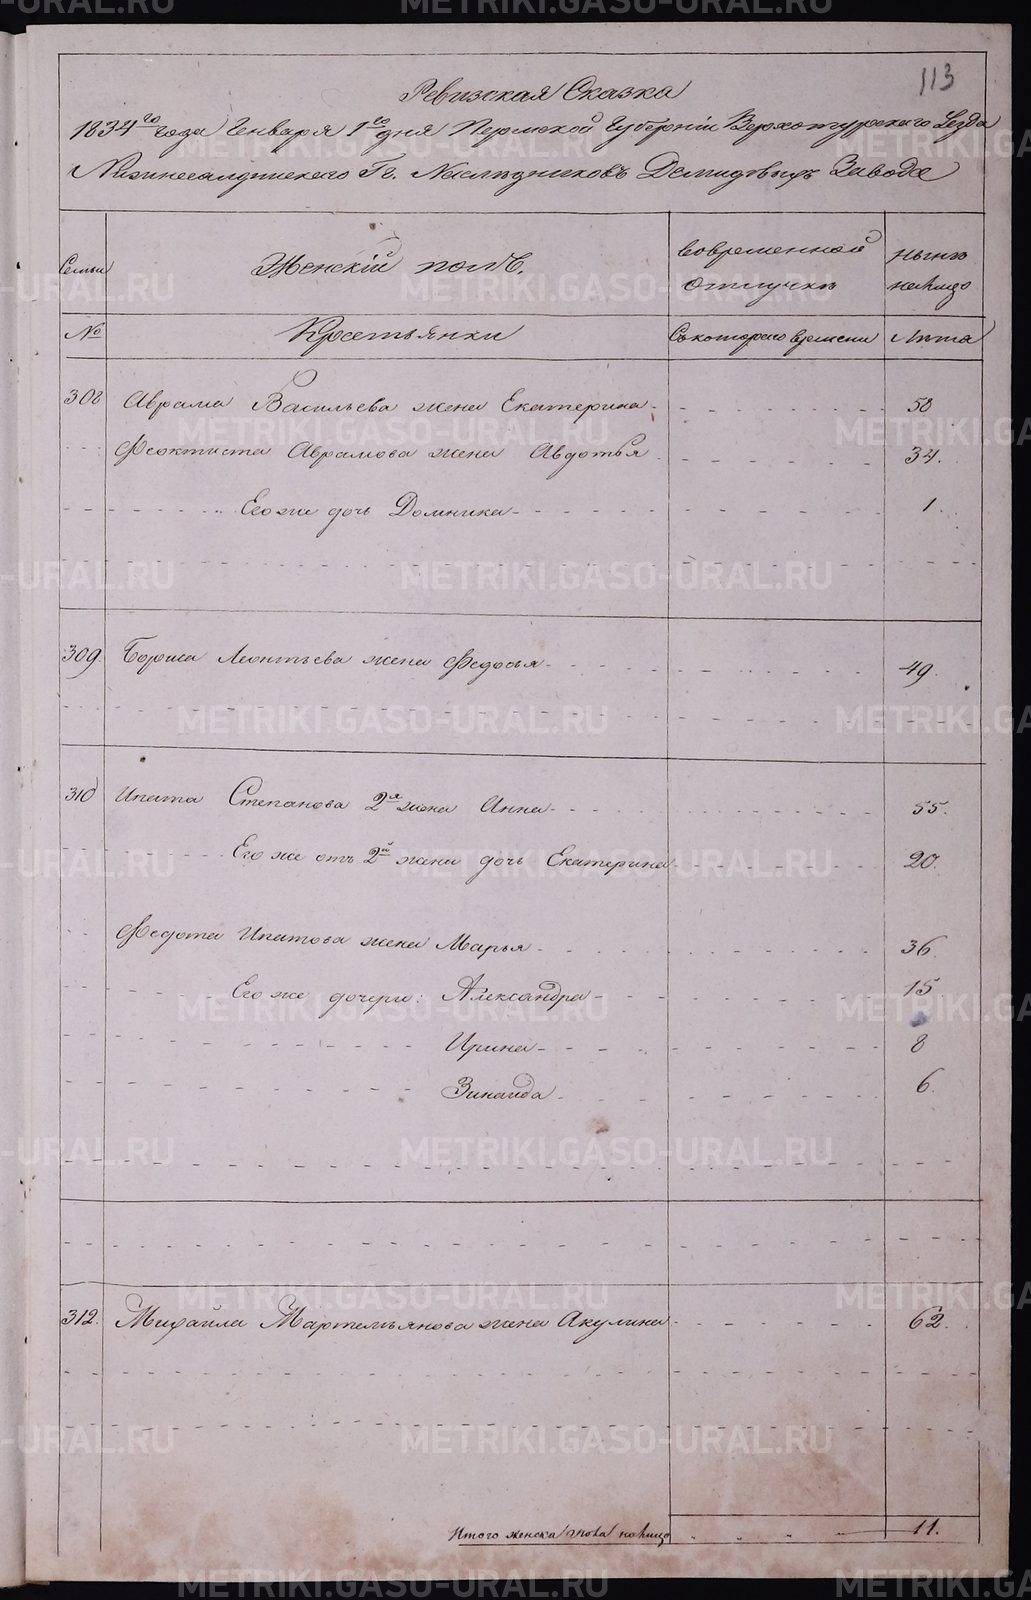 113
Ревизская Сказка
1834го года Генваря 1го дня Пермской Губернiи Верхотурского Уезда
Нижнесалдинского Гг. Наследниковъ Демидовыхъ Завода
Семьи
Женскiй полъ.
вовременной отлучкѣ
нынѣ на лицо
№
Крестьянки
Съ котораго времени
Лѣта
308 Аврама Васильева жена Екатерина 58
Феоктиста Аврамова жена Авдотья 34.
Его же дочь Домника 1
309. Бориса Леонтьева жена Федосья 49.
310 Ипата Степанова 2я жена Анна 55.
Его же отъ 2й жены дочь Екатерина 20.
Федота Ипатова жена Марья 36
Его же дочери: Александра 15
Ирина 8
Зинаида 6.
312. Михайла Мартемьянова жена Акулина 62.
Итого женска пола на лицо 11.
METRIKI.GASO-URAL.RU